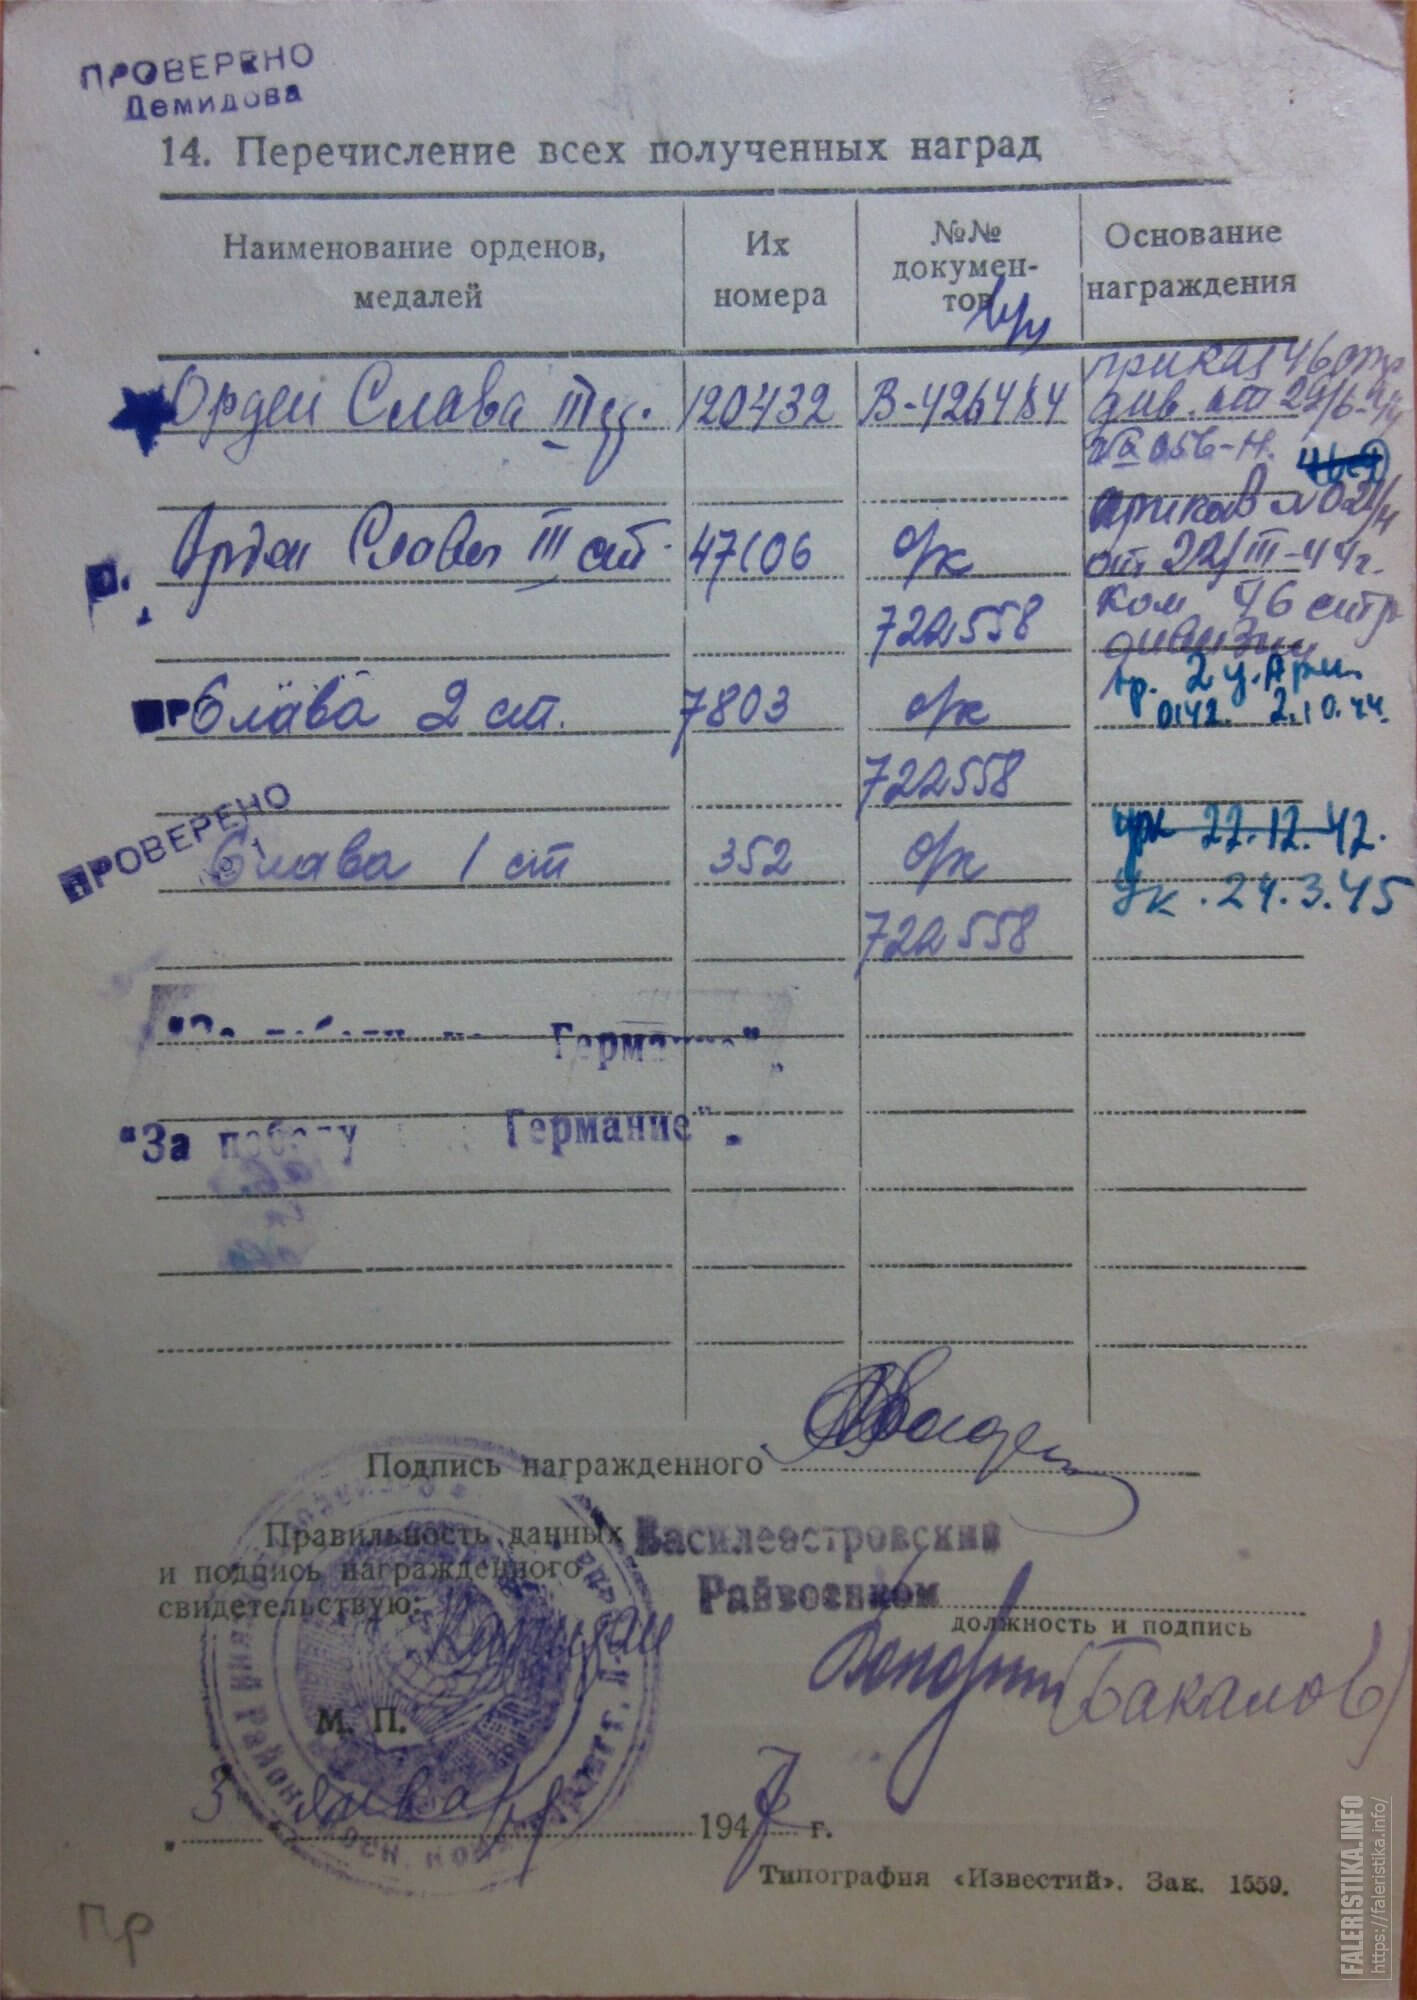 ПРОВЕРЕНО
Демидова
14. Перечисление всех полученных наград
Наименование орденов, медалей
Их номера
№№ докумен-тов
Основание награждения
Орден Слава III 120432 В-426484 приказ 46 стр
див. от 29/6-44
056-н.
Орден Славы III ст. 47106 ор/к
722558
приказ №021/н
от 22/III-44г.
ком 46 стр
дивизии
ПР Слава 2 ст. 7803 ор/к
722558
пр. 2 у. Арм.
0142. 2.10.44.
ПРОВЕРЕНО
Слава 1 ст 352 ор/к
722558
ук 22.12.42.
Ук. 24.3.45
"За победу Германие"
"За победу Германие".
Подпись награжденного
Правильность данных
и подпись награжденного
свидетельствую:
Василеостровский
Райвоенком
должность и подпись
(Бакалов)
М. П.
3 января 1947 г.
Типография «Известий». Зак. 1559.
Пр
FALERISTIKA.INFO
https://faleristika.info/